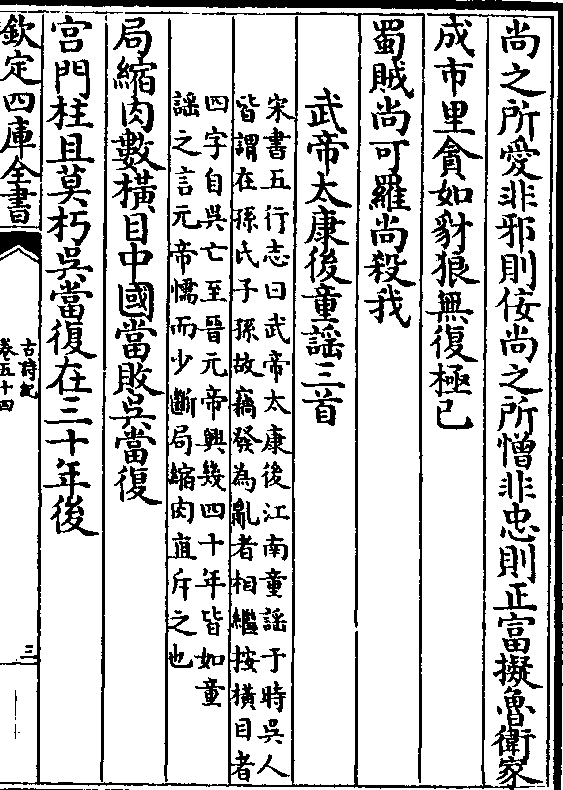 尚之所愛非邪則佞尚之所憎非忠則正富擬魯衛家
成市里貪如豺狼無復極已
蜀賊尚可羅尚殺我
武帝太康後童謡三首
宋書五行志曰武帝太康後江南童謡于時吳人
皆謂在孫氏子孫故竊發為亂者相繼按橫目者
四字自吳亡至晉元帝興幾四十年皆如童
謡之言元帝懦而少斷局縮肉直斥之也
局縮肉數橫目中國當敗吳當復
宮門柱且莫朽吳當復在三十年後
欽定四庫全書
古詩紀
卷五十四
三